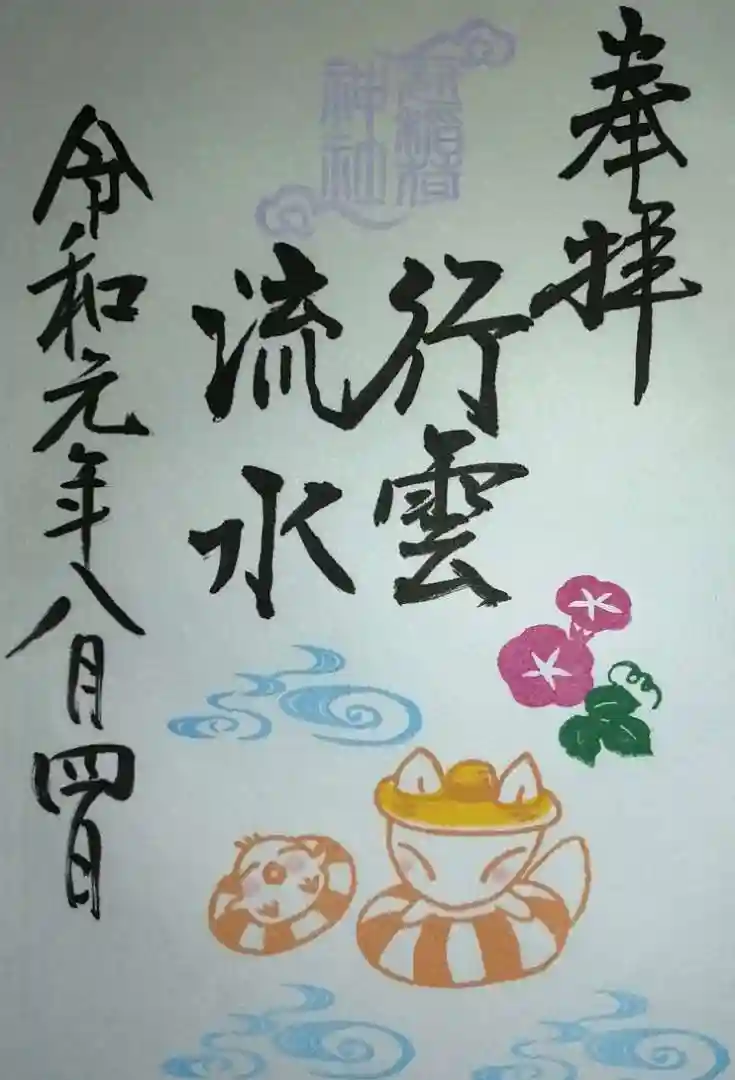 奉拝
行雲
流水
神社
令和元年八月四日